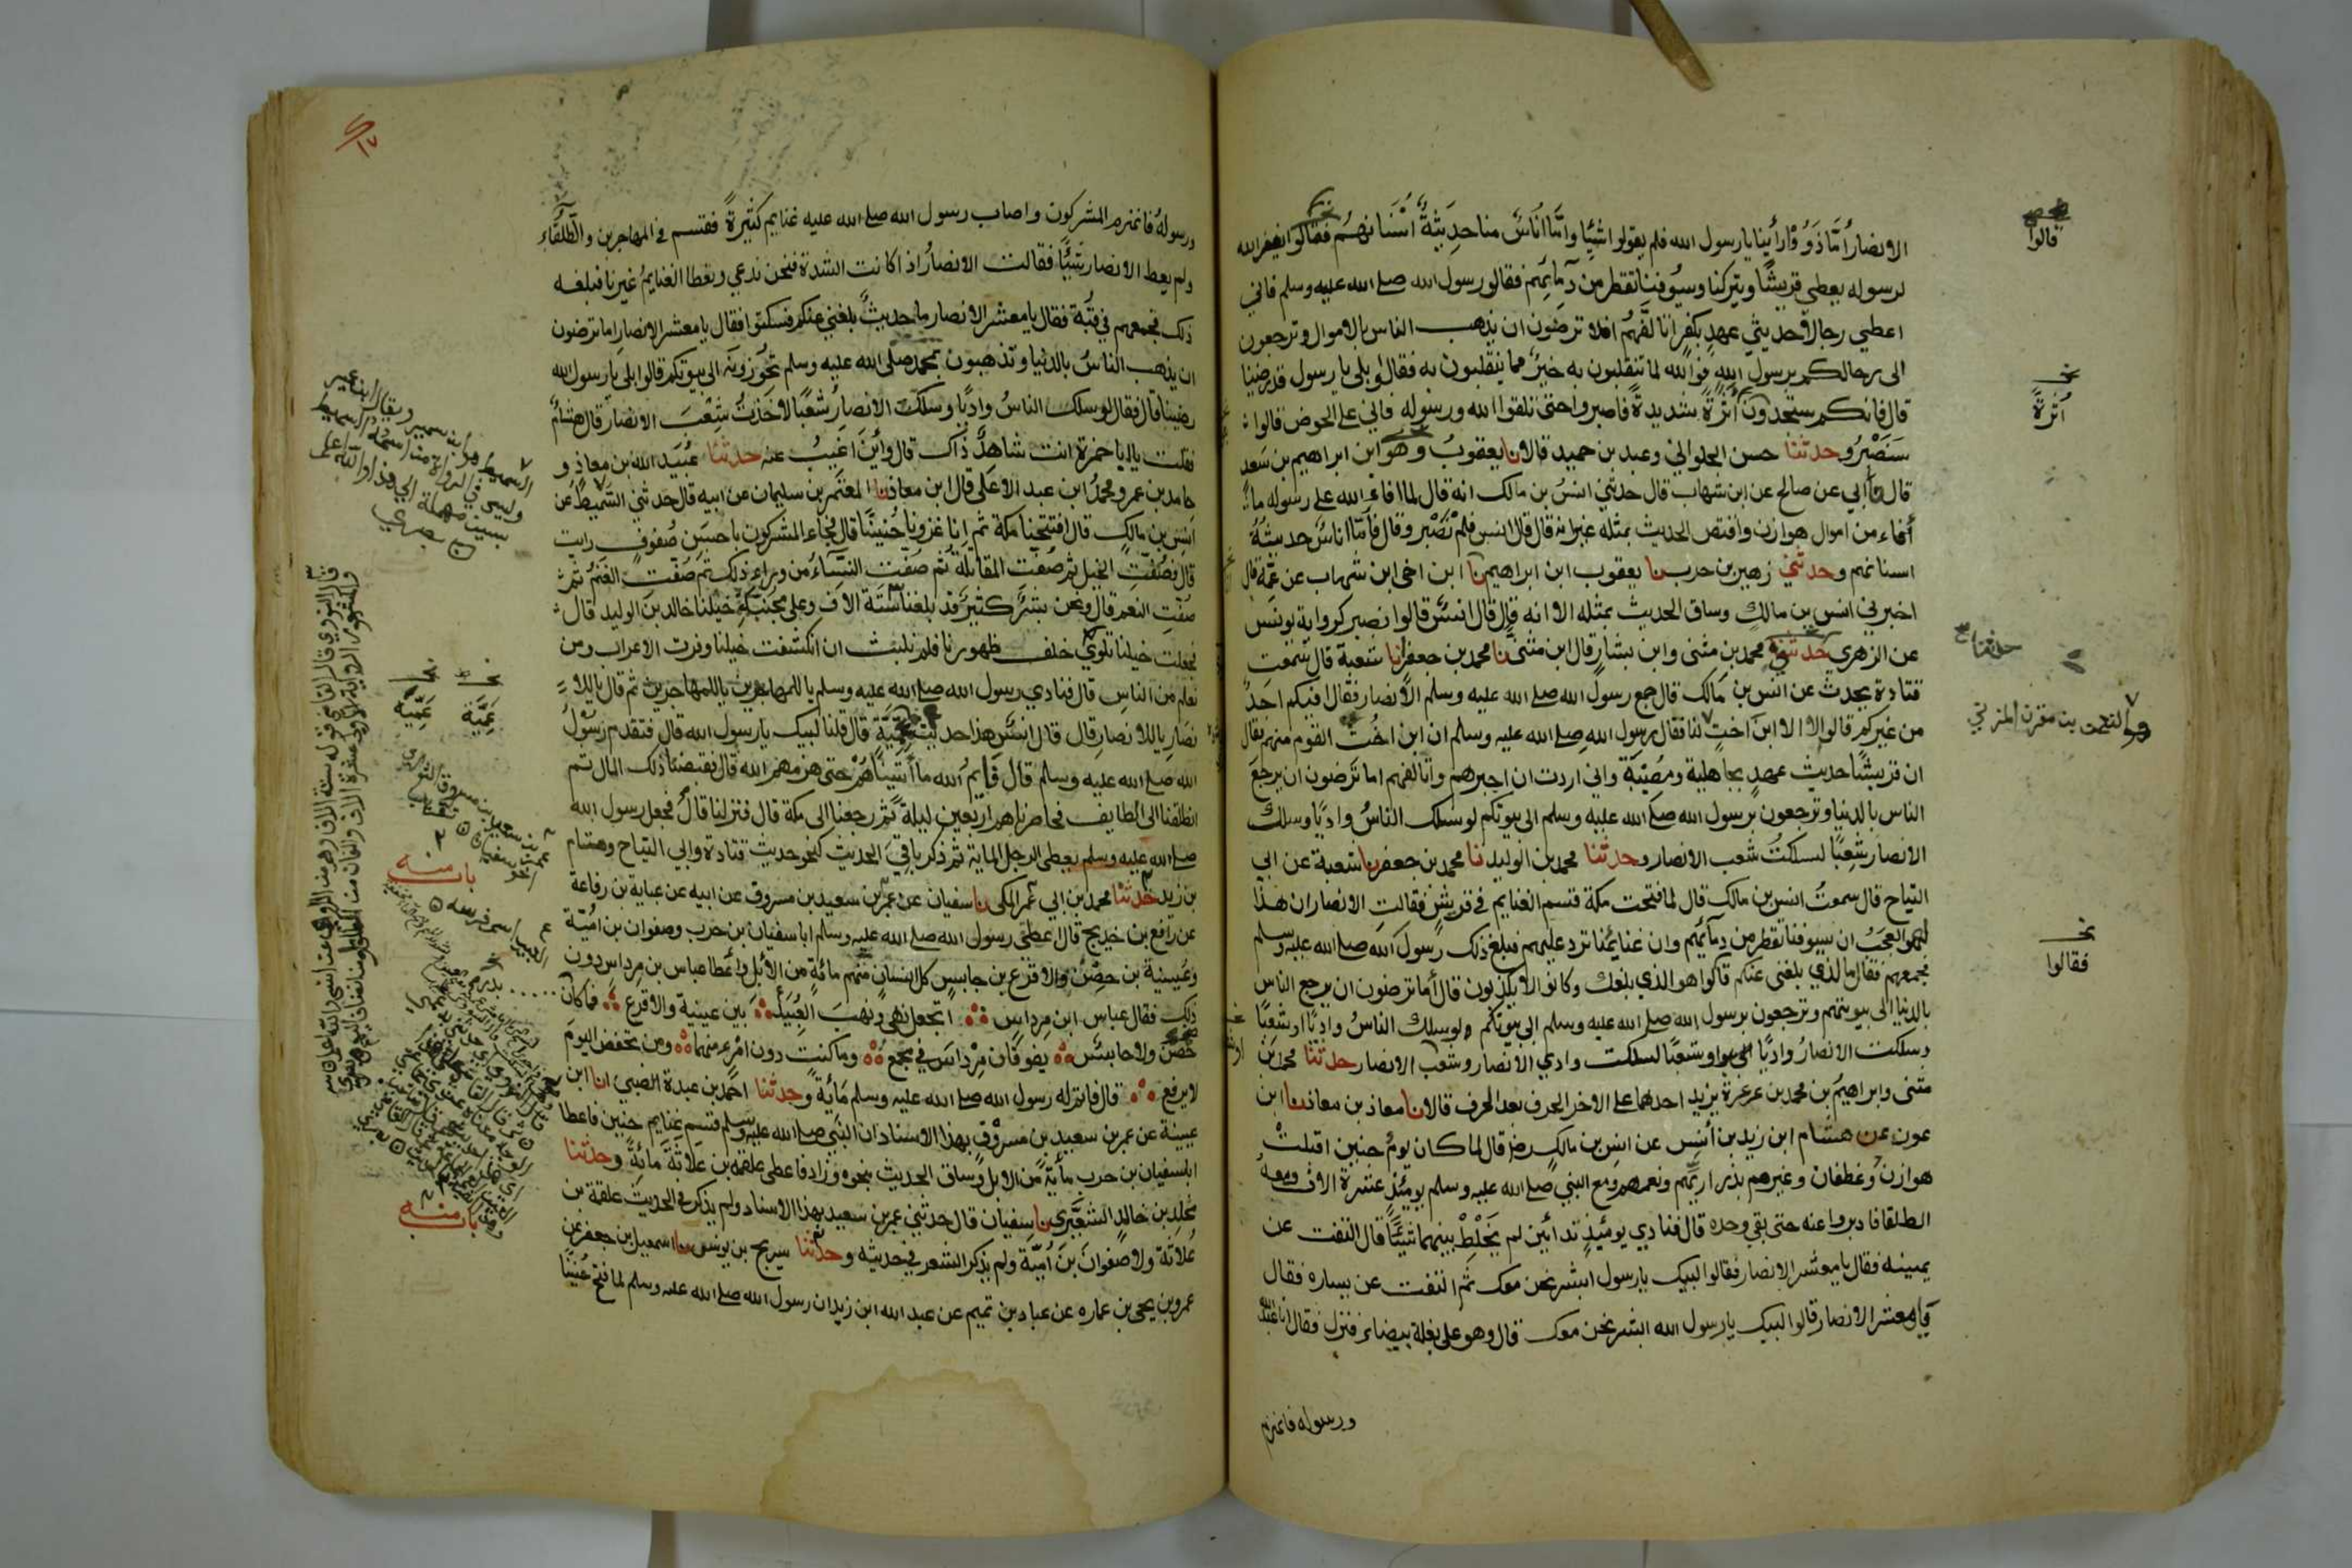 الانصار أمّا ذوو رأينا يا رسول الله فلم يقولوا شيئا وامّا اناس منا حديثة أسنانهم فقالوا يغفر الله
لرسوله يعطي قريشا ويتركنا وسيوفنا تقطر من دمائهم فقال رسول الله صلى الله عليه وسلم فاني
اعطي رجالا حديثي عهد بكفر اتالفهم افلا ترضون ان يذهب الناس بالاموال وترجعون
الى رحالكم برسول الله فوالله لما تنقلبون به خير مما ينقلبون به فقالوا بلى يا رسول قد رضينا
قال فانكم ستجدون أثرة شديدة فاصبروا حتى تلقوا الله ورسوله فاني على الحوض قالوا
سنصبر وحدثنا حسن الحلواني وعبد بن حميد قالا نا يعقوب وهو ابن ابراهيم بن سعد
قال نا أبي عن صالح عن ابن شهاب قال حدثني انس بن مالك انه قال لما افاء الله على رسوله ما
أفاء من اموال هوازن واقتص الحديث بمثله غير انه قال قال انس فلم نصبر وقال فأمّا اناس حديثة
اسنانهم وحدثني زهير بن حرب نا يعقوب ابن ابراهيم نا ابن اخي ابن شهاب عن عمه قال
اخبرني انس بن مالك وساق الحديث بمثله الا انه قال قال انس قالوا نصبر كرواية يونس
عن الزهري حدثنا محمد بن مثنى وابن بشار قال ابن مثنى نا محمد بن جعفر انا شعبة قال سمعت
قتادة يحدث عن انس بن مالك قال جمع رسول الله صلى الله عليه وسلم الانصار فقال افيكم احد
من غيركم قالوا لا الا ابن اخت لنا فقال رسول الله صلى الله عليه وسلم ان ابن اخت القوم منهم فقال
ان قريشا حديث عهد بجاهلية ومصيبة واني اردت ان اجبرهم واتالفهم اما ترضون ان يرجع
الناس بالدنيا وترجعون برسول الله صلى الله عليه وسلم الى بيوتكم لو سلك الناس واديا وسلك
الانصار شعبا لسلكت شعب الانصار وحدثنا محمد بن الوليد نا محمد بن جعفر نا شعبة عن ابي
التياح قال سمعت انس بن مالك قال لما فتحت مكة قسم الغنايم في قريش فقالت الانصار ان هذا
لهو العجب ان سيوفنا تقطر من دمائهم وان غنايمنا ترد عليهم فبلغ ذلك رسول الله صلى الله عليه وسلم
فجمعهم فقال ما الذي بلغني عنكم قالوا هو الذي بلغك وكانوا لا يكذبون قال أما ترضون ان يرجع الناس
بالدنيا الى بيوتهم وترجعون برسول الله صلى الله عليه وسلم الى بيوتكم ولو سلك الناس واديا او شعبا
وسلكت الانصار واديا او شعبا لسلكت وادي الانصار وشعب الانصار حدثنا محمد بن
مثنى وابراهيم بن محمد بن عرعرة يزيد احدهما على الاخر الحرف بعد الحرف قالا نا معاذ بن معاذ نا ابن
عون عن هشام ابن زيد بن أنس عن انس بن مالك رضه قال لما كان يوم حنين اقبلت
هوازن وغطفان وغيرهم بذراريهم ونعمهم ومع النبي صلى الله عليه وسلم يومئذ عشرة الاف ومعه
الطلقا فادبروا عنه حتى بقي وحده قال فنادي يومئذ ندائين لم يخلط بينهما شيئا قال التفت عن
يمينه فقال يا معشر الانصار فقالوا لبيك يا رسول ابشر نحن معك ثم التفت عن يساره فقال
يا معشر الانصار قالوا لبيك يا رسول الله ابشر نحن معك قال وهو على بغلة بيضاء فنزل فقال انا عبد الله
ورسوله فانهزم
قالوا
نخ
أثرة
حدثنا
هو النعمن بن مقرن المزني
نخ
فقالوا
ورسوله فانهزم المشركون واصاب رسول الله صلى الله عليه غنايم كثيرة فقسم في المهاجرين والطلقاء
ولم يعط الانصار شيئا فقالت الانصار اذا كانت الشدة فنحن ندعي ويعطا الغنايم غيرنا فبلغه
ذلك فجمعهم في قبة فقال يا معشر الانصار ما حديث بلغني عنكم فسكتوا فقال يا معشر الانصار اما ترضون
ان يذهب الناس بالدنيا وتذهبون بمحمد صلى الله عليه وسلم تحوزونه الى بيوتكم قالوا بلى يا رسول الله
رضينا قال فقال لو سلك الناس واديا وسلكت الانصار شعبا لاخذت شعب الانصار قال هشام
فقلت يا با حمزة انت شاهد ذاك قال وأين اغيب عنه حدثنا عبيد الله بن معاذ و
حامد بن عمر ومحمد ابن عبد الاعلى قال ابن معاذ نا المعتمر بن سليمان عن ابيه قال حدثني السميط عن
انس بن مالك قال افتتحنا مكة ثم انا غزونا حنينا قال فجاء المشركون باحسن صفوف رايت
قال فصفت الخيل ثم صفت المقاتلة ثم صفت النساء من وراء ذلك ثم صفت الغنم ثم
صفت النعم قال ونحن بشر كثير قد بلغنا ستة الاف وعلى مجنبة خيلنا خالد بن الوليد قال
فجعلت خيلنا تلوي خلف ظهورنا فلم نلبث ان انكشفت خيلنا وفرت الاعراب ومن
نعلم من الناس قال فنادي رسول الله صلى الله عليه وسلم يا للمهاجرين يا للمهاجرين ثم قال يا للا
نصار يا للانصار قال قال انس هذا حديث عمية قال قلنا لبيك يا رسول الله قال فتقدم رسول
الله صلى الله عليه وسلم قال فايم الله ما أتيناهم حتى هزمهم الله قال فقبضنا ذلك المال ثم
انطلقنا الى الطايف فحاصرناهم اربعين ليلة ثم رجعنا الى مكة قال فنزلنا قال فجعل رسول الله
صلى الله عليه وسلم يعطى الرجل الماية ثم ذكر باقي الحديث كنحو حديث قتادة وابي التياح وهشام
بن زيد حدثنا محمد بن ابي عمر المكى نا سفيان عن عمر بن سعيد بن مسروق عن ابيه عن عباية بن رفاعة
عن رافع بن خديج قال اعطى رسول الله صلى الله عليه وسلم ابا سفيان بن حرب وصفوان بن امية
وعيينة بن حصن والاقرع بن حابس كل انسان منهم مائة من الابل واعطا عباس بن مرداس دون
ذلك فقال عباس ابن مرداس اتجعل نهبي ونهب العبيد بين عيينة والاقرع فما كان
حصن ولا حابس يفوقان مرداس في مجمع وما كنت دون امرء منهما ومن تخفض اليوم
لا يرفع قال فاتم له رسول الله صلى الله عليه وسلم مائة وحدثنا احمد بن عبدة الضبي انا ابن
عيينة عن عمر بن سعيد بن مسروق بهذا الاسناد ان النبي صلى الله عليه وسلم قسم غنايم حنين فاعطا
ابا سفيان بن حرب مأية من الابل وساق الحديث بنحوه وزاد فاعطى علقمه بن علاثة مائة وحدثنا
مخلد بن خالد الشعيري نا سفيان قال حدثني عمر بن سعيد بهذا الاسناد ولم يذكر في الحديث علقمة بن
علاثة ولا صفوان بن أمية ولم يذكر الشعر في حديثه وحدثنا سريج بن يونس نا اسمعيل بن جعفر عن
عمرو بن يحيى بن عماره عن عباد بن تميم عن عبد الله ابن زيد ان رسول الله صلى الله عليه وسلم لما فتح حنينا
نخ
عمية
نخ
عمية
باب منه
باب منه